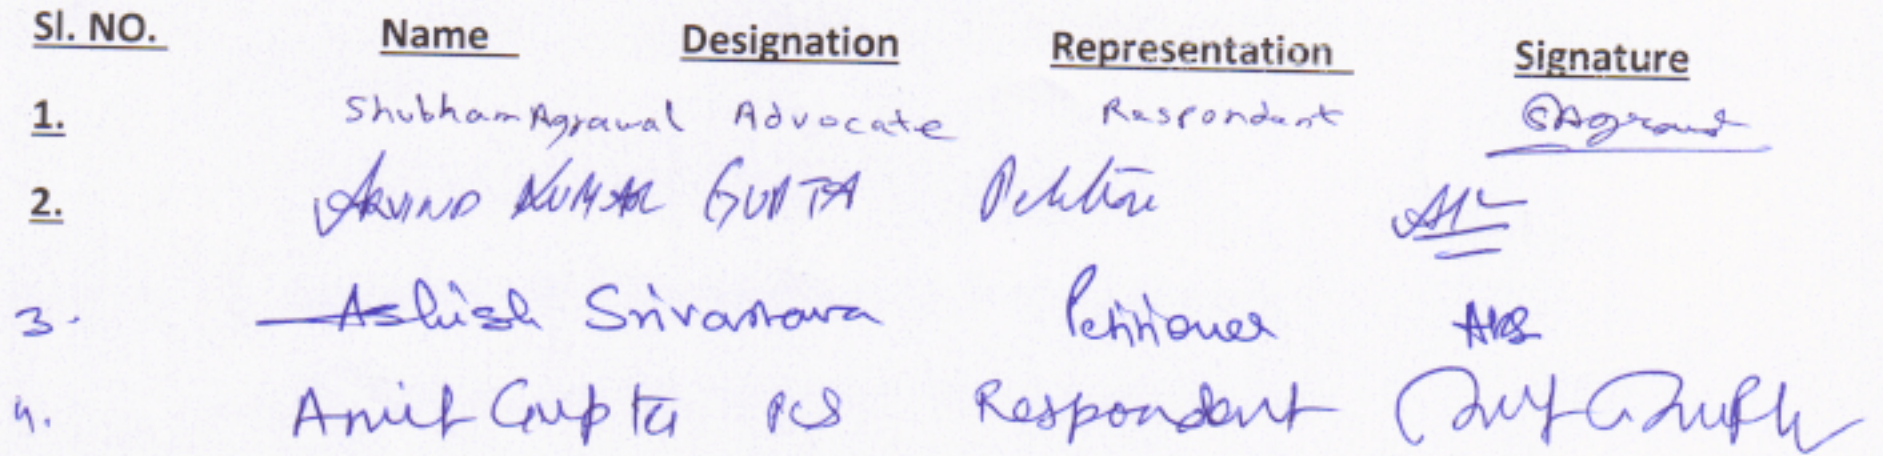 Sl. NO. Name Designation Representation Signature
1. Shubham Agrawal Advocate Respondent SAgrawal
2. ARVIND KUMAR GUPTA
3. Ashish Srivastava Petitioner AKS
4. Amit Gupta PCS Respondent Amit Gupta